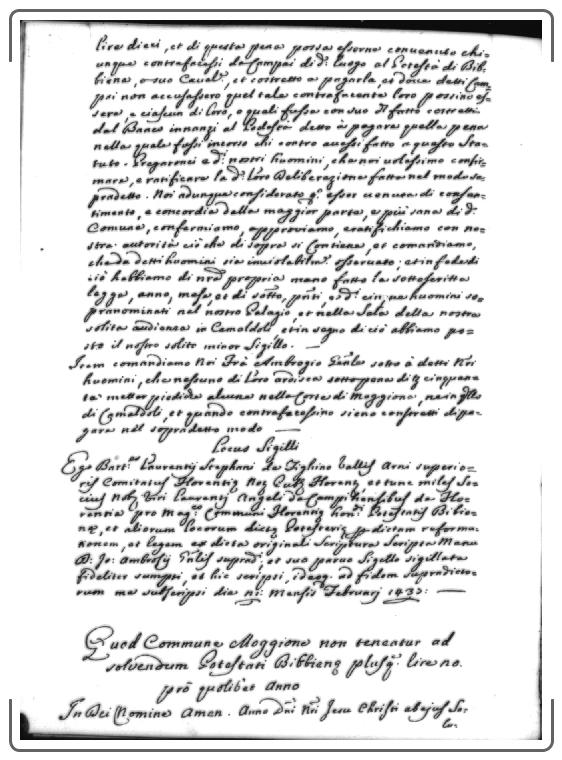 lire dieci, et di questa pena possa esserne convenuto chi=
unque contrafacessi da Campai di d.º luogo al Potestà di Bib=
biena, o suo Caval.e, et costretto a pagarla, et dove detti Cam=
pai non accusassero quel tale contrafacente loro possino es=
sere, e ciascun di loro, o quali fusse con suo costretti
dal Banco innanzi al Podestà detto à pagare quella pena
nella quale fussi incorso chi contro avessi fatto a questo Sta=
tuto. Pregaronci e d.i nostri huomini, che noi volessimo confir=
mare, e ratificare la d.a loro Deliberazione fatta nel modo so=
pradetto. Noi adunque considerato esser venuta di consen=
timento, e concordia della maggior parte, e più sana di d.º
Comune, confermiamo, approviamo, e ratifichiamo con no=
stra autorità ciò che di sopra si Contiene, et comandiamo,
che da detti huomini sia inviolabilm.e osservato; et in fede di
ciò habbiamo di nr̃a propria mano fatto la sottoscritta
legge, anno, mese, et di sotto, pñti e d.i cinque huomini so=
pranominati nel nostro Palagio, et nella Sala della nostra
solita audienza in Camaldoli et in segno di ciò abbiamo po=
sto il nostro solito minor Sigillo. —
Item comandiamo Noi Frà Ambrogio Gen̄le sotto à detti Nr̃i
huomini, che nessuno di loro ardisca sotto pena di cinquan=
ta metter piedi alcuna nella Corte di Moggiona, ne in
di Camaldoli, et quando contrafacessino sieno constretti di pa=
gare nel sopradetto modo —
Locus Sigilli
Ego Bart.us Laurentij Stephani de Tighino Vallis Arni superio=
ris Comitatus Florentię Not. Florent. et tunc miles So=
cius Nob. Viri Laurentij Angeli de Flo=
rentia pro Mag.co Communi Florentię hon. Potestatis Bibie=
nę, et aliorum locorum dictę Potesterię p̄dictam reforma=
tionem, et legem ex dicta originali Scriptura Scripta Manu
D. Jo: Ambrosij Gn̄lis suprad.i, et suo parvo Sigillo sigillata
fideliter sumpsi, et hic scripsi, ideoq. ad fidem supradicto=
rum me subscripsi die Mensis Februarij 1433: —
Quod Commune Moggione non teneatur ad
solvendum Potestati Bibbienę plusq. lire no.
prō quolibet anno
In Dei Nomine Amen. Anno Dn̄i Nr̃i Jesu Christi ab ejus Sa=
lu.